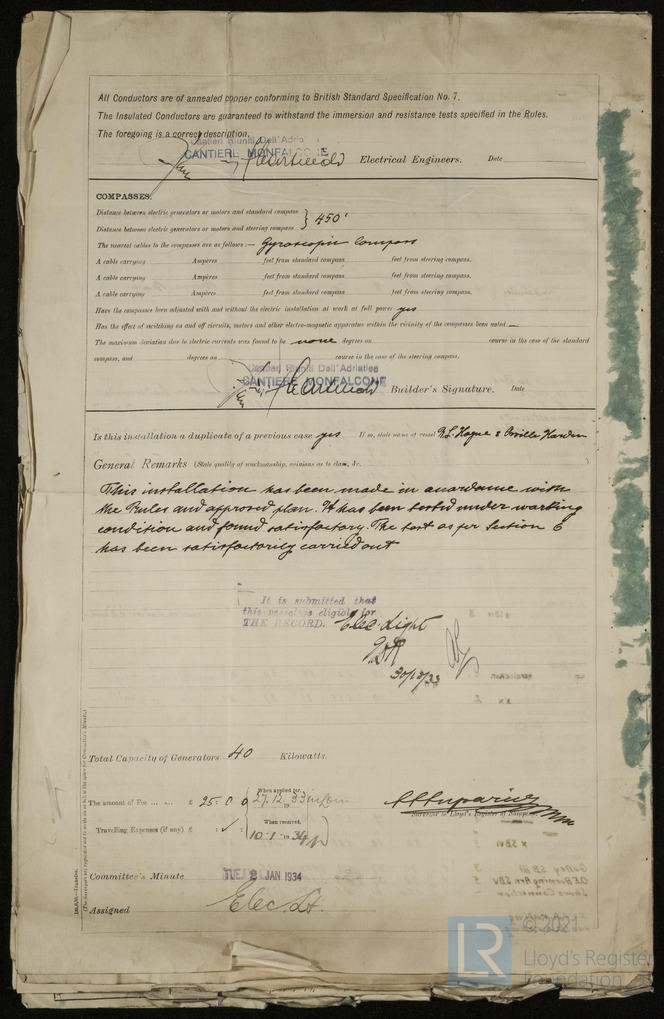 All Conductors are of annealed copper conforming to British Standard Specification No. 7.
The Insulated Conductors are guaranteed to withstand the immersion and resistance tests specified in the Rules.
The foregoing is a correct description.
Cantieri Riuniti Dell' Adria
CANTIERE MONFALCONE
Electrical Engineers. Date
COMPASSES.
Distance between electric generators or motors and standard compass
450'
Distance between electric generators or motors and steering compass
The nearest cables to the compasses are as follows:— Gyroscopic Compass
A cable carrying Ampères feet from standard compass feet from steering compass.
A cable carrying Ampères feet from standard compass feet from steering compass.
A cable carrying Ampères feet from standard compass feet from steering compass.
Have the compasses been adjusted with and without the electric installation at work at full power yes
Has the effect of switching on and off circuits, motors and other electro-magnetic apparatus within the vicinity of the compasses been noted —
The maximum deviation due to electric currents was found to be none degrees on course in the case of the standard
compass, and degrees on course in the case of the steering compass.
Cantieri Riuniti Dell' Adriatico
CANTIERE MONFALCONE
Builder's Signature. Date
Is this installation a duplicate of a previous case yes If so, state name of vessel F.L. Hague & Orville Harden
General Remarks (State quality of workmanship, opinions as to class, &c.
This installation has been made in accordance with
the Rules and approved plan. It has been tested under working
condition and found satisfactory. The test as per Section 6
has been satisfactorily carried out
It is submitted that
this vessel is eligible for
THE RECORD. Elec. Light
30/12/33
Total Capacity of Generators 40 Kilowatts.
The amount of Fee ... ... £ 25 : 0 : 0 When applied for, 27.12.1933
Travelling Expenses (if any) £ : ✓ : When received, 10.1.1934
Surveyor to Lloyd's Register of Shipping.
Committee's Minute TUE 2 JAN 1934
Assigned Elec. Lt.
© 2021
LR
Lloyd's Register
Foundation